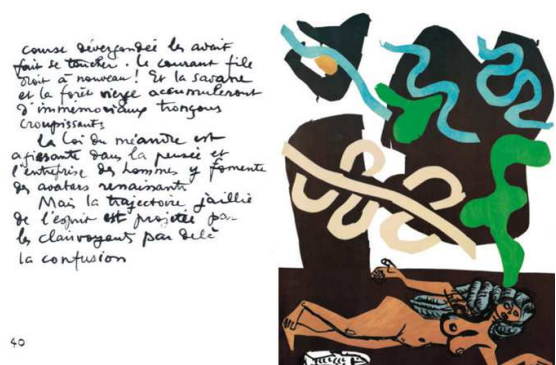 course dévergondée les avait
fait se toucher. Le courant file
droit à nouveau! Et la savane
et la forêt vierge accumuleront
d'immémoriaux tronçons
croupissants
La loi du méandre est
agissante dans la pensée et
l'entreprise des hommes y fomente
des avatars renaissants
Mais la trajectoire jaillie
de l'esprit est projetée par
les clairvoyants par delà
la confusion
40